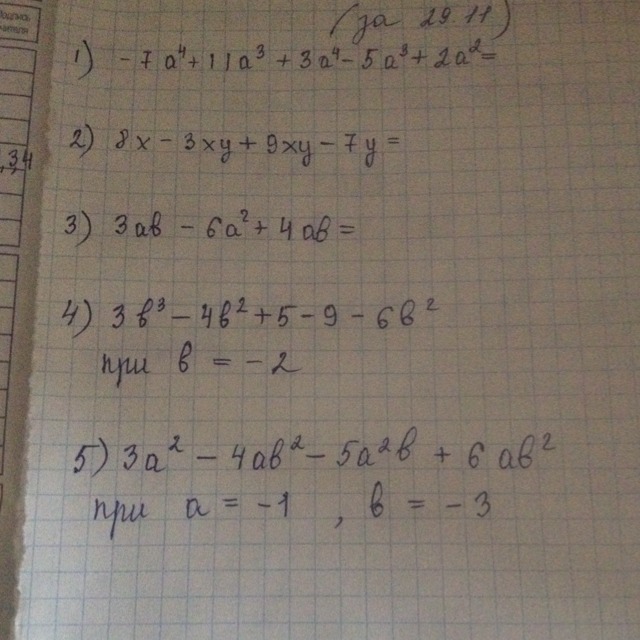 (за 29 11)
1) -7a⁴+11a³+3a⁴-5a³+2a²=
2) 8x-3xy+9xy-7y=
3) 3ab-6a²+4ab=
4) 3b³-4b²+5-9-6b²
при b=-2
5) 3a²-4ab²-5a²b+6ab²
при a=-1, b=-3
Подпись
34